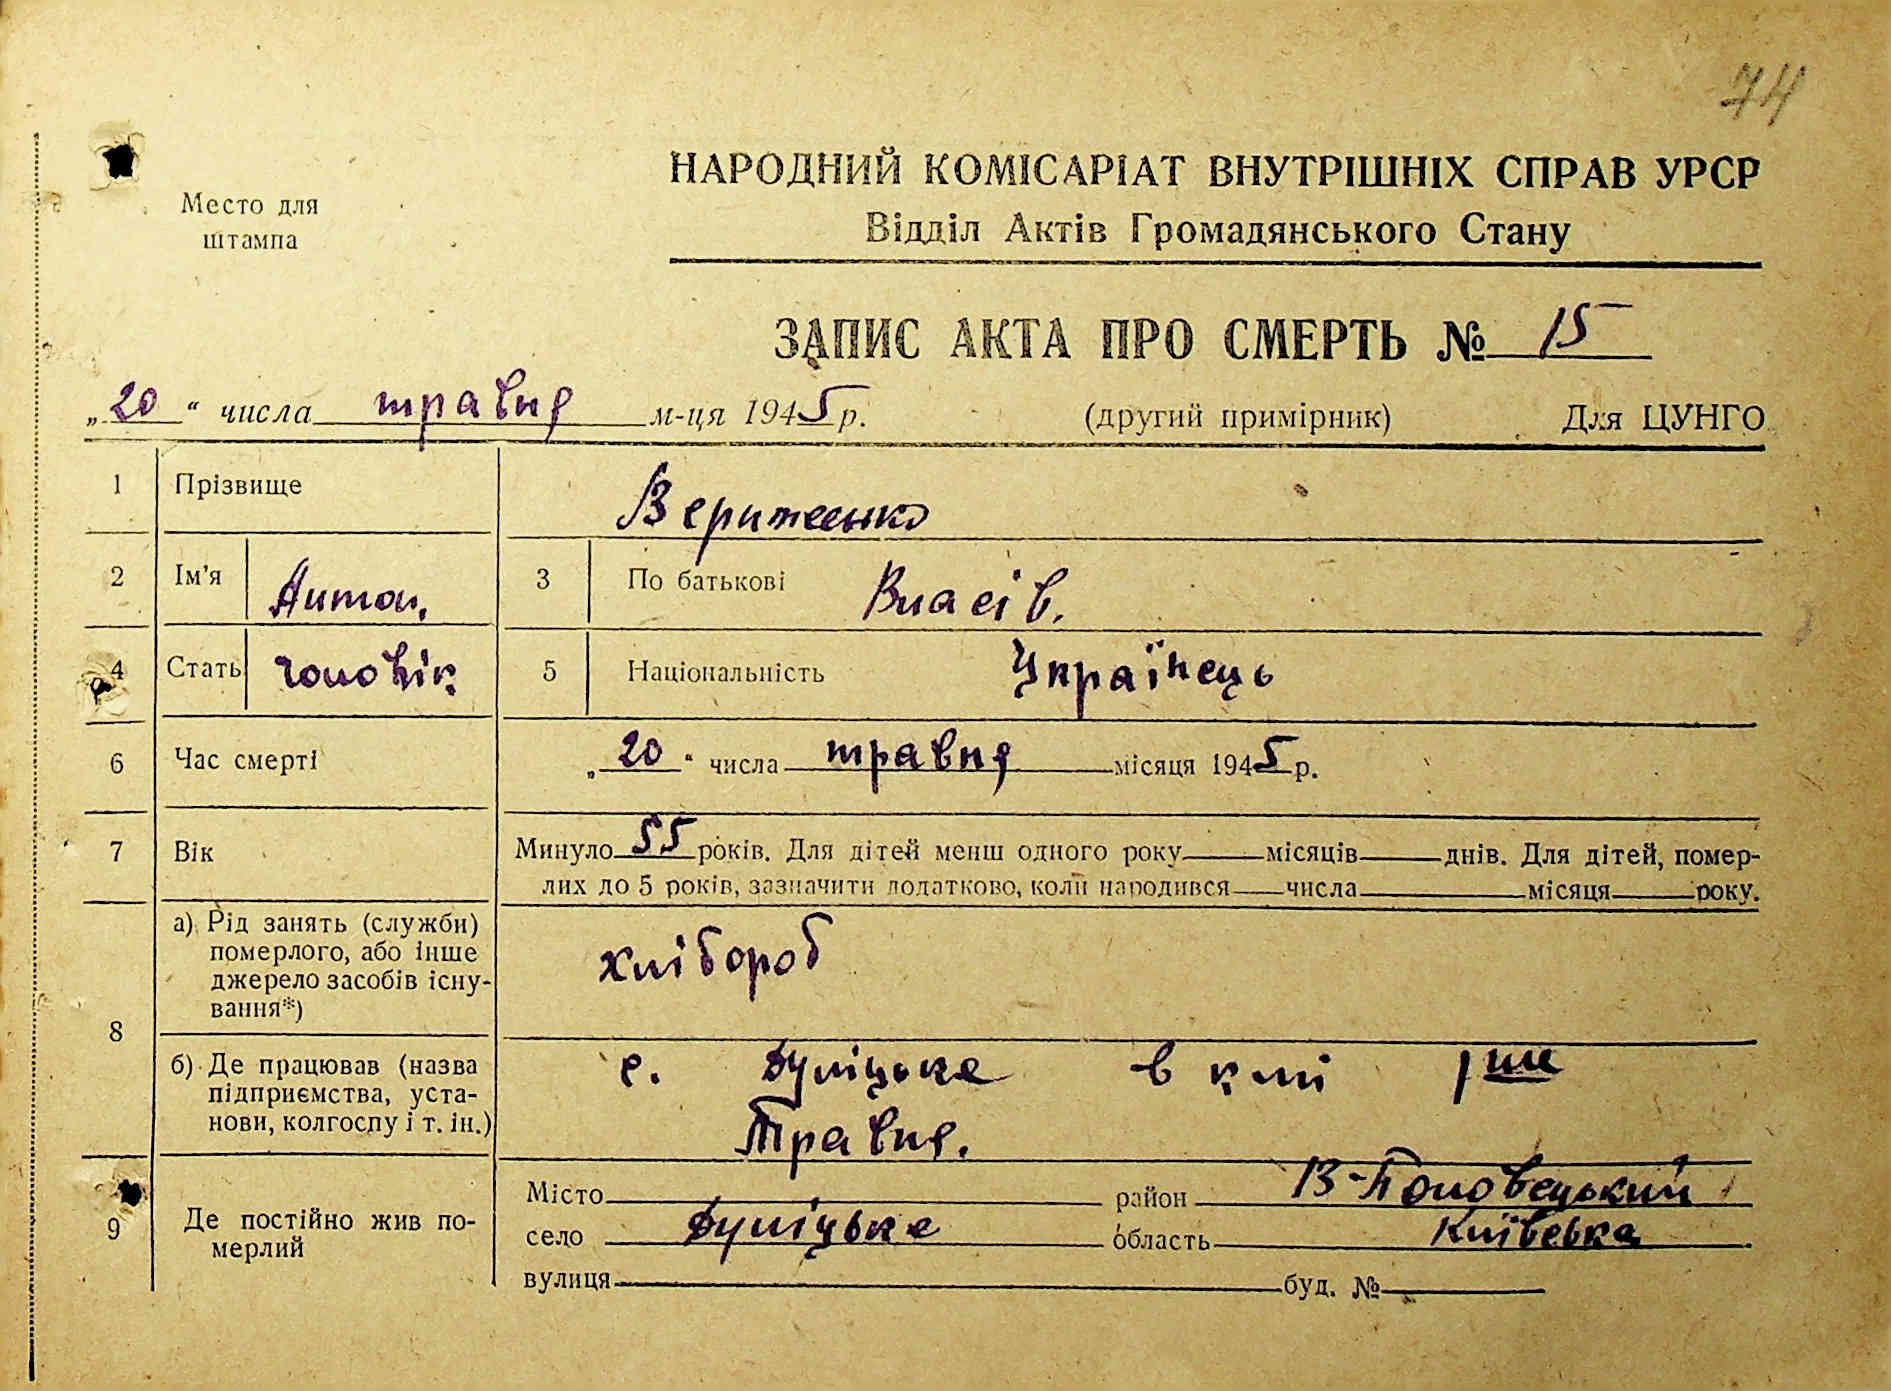 74
НАРОДНИЙ КОМІСАРІАТ ВНУТРІШНІХ СПРАВ УРСР
Место для
штампа
Відділ Актів Громадянського Стану
ЗАПИС АКТА ПРО СМЕРТЬ № 15
„20“ числа травня м-ця 1945 р. (другий примірник) Для ЦУНГО
1 Прізвище Веритенько
2 Ім'я Антон. 3 По батькові Власів.
4 Стать Чоловік 5 Національність Українець
6 Час смерті „20“ числа травня місяця 1945 р.
7 Вік Минуло 55 років. Для дітей менш одного року місяців днів. Для дітей, помер-
лих до 5 років, зазначити додатково, коли народився числа місяця року.
8 а) Рід занять (служби)
померлого, або інше
джерело засобів існу-
вання*)
хлібороб
б) Де працював (назва
підприємства, уста-
нови, колгоспу і т. ін.)
с. Дуліцьке в к-лі 1ше
Травня.
9 Де постійно жив по-
мерлий
Місто район В-Половецький
село Дуліцьке область Київська
вулиця буд. №